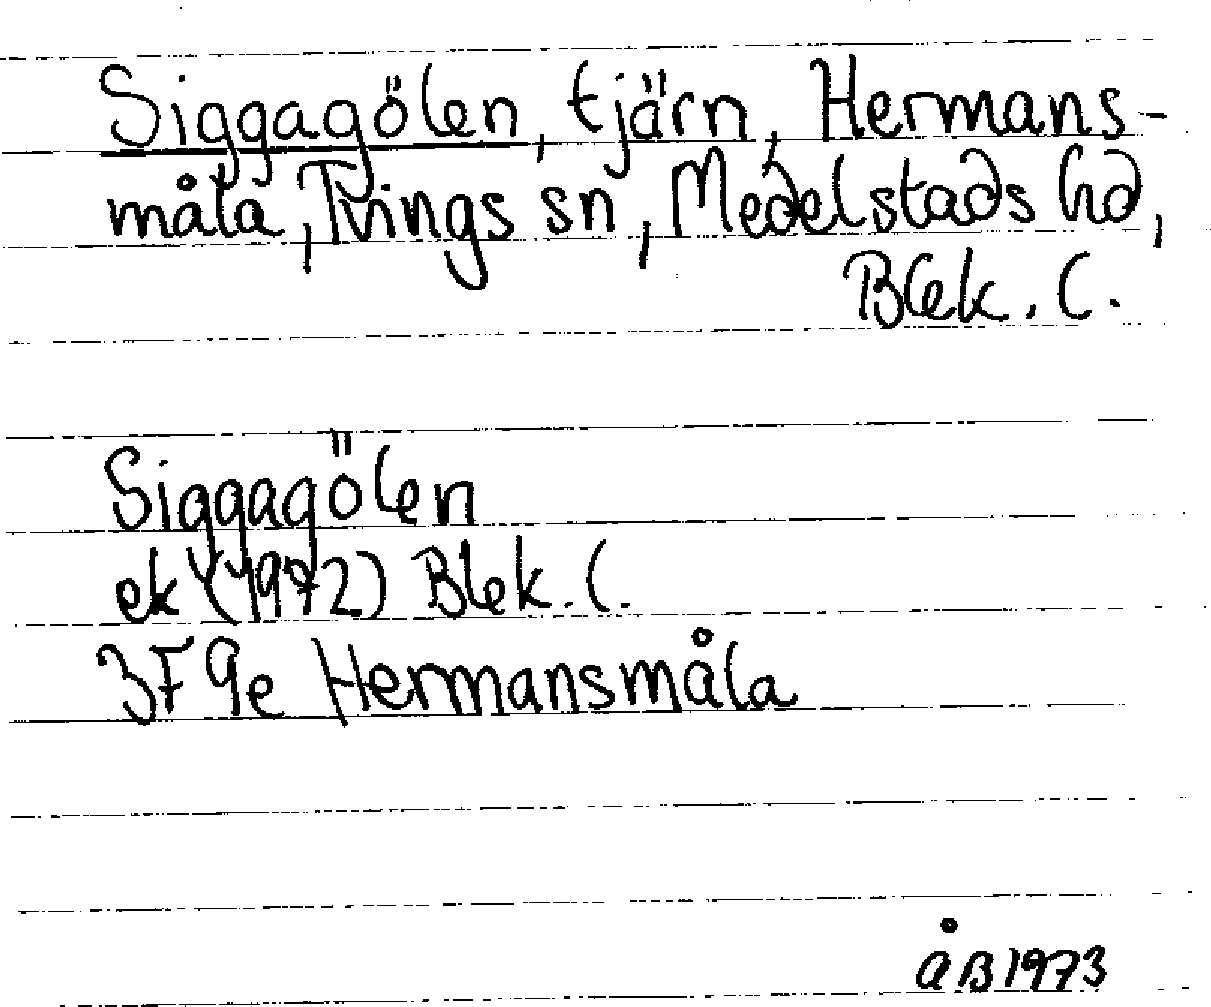 Siggagölen, tjärn, Hermans-
måla, Tvings sn, Medelstads hd,
Blek. l.
Siggagölen
ek (1972) Blek. l.
3F 9e Hermansmåla
åB 1973